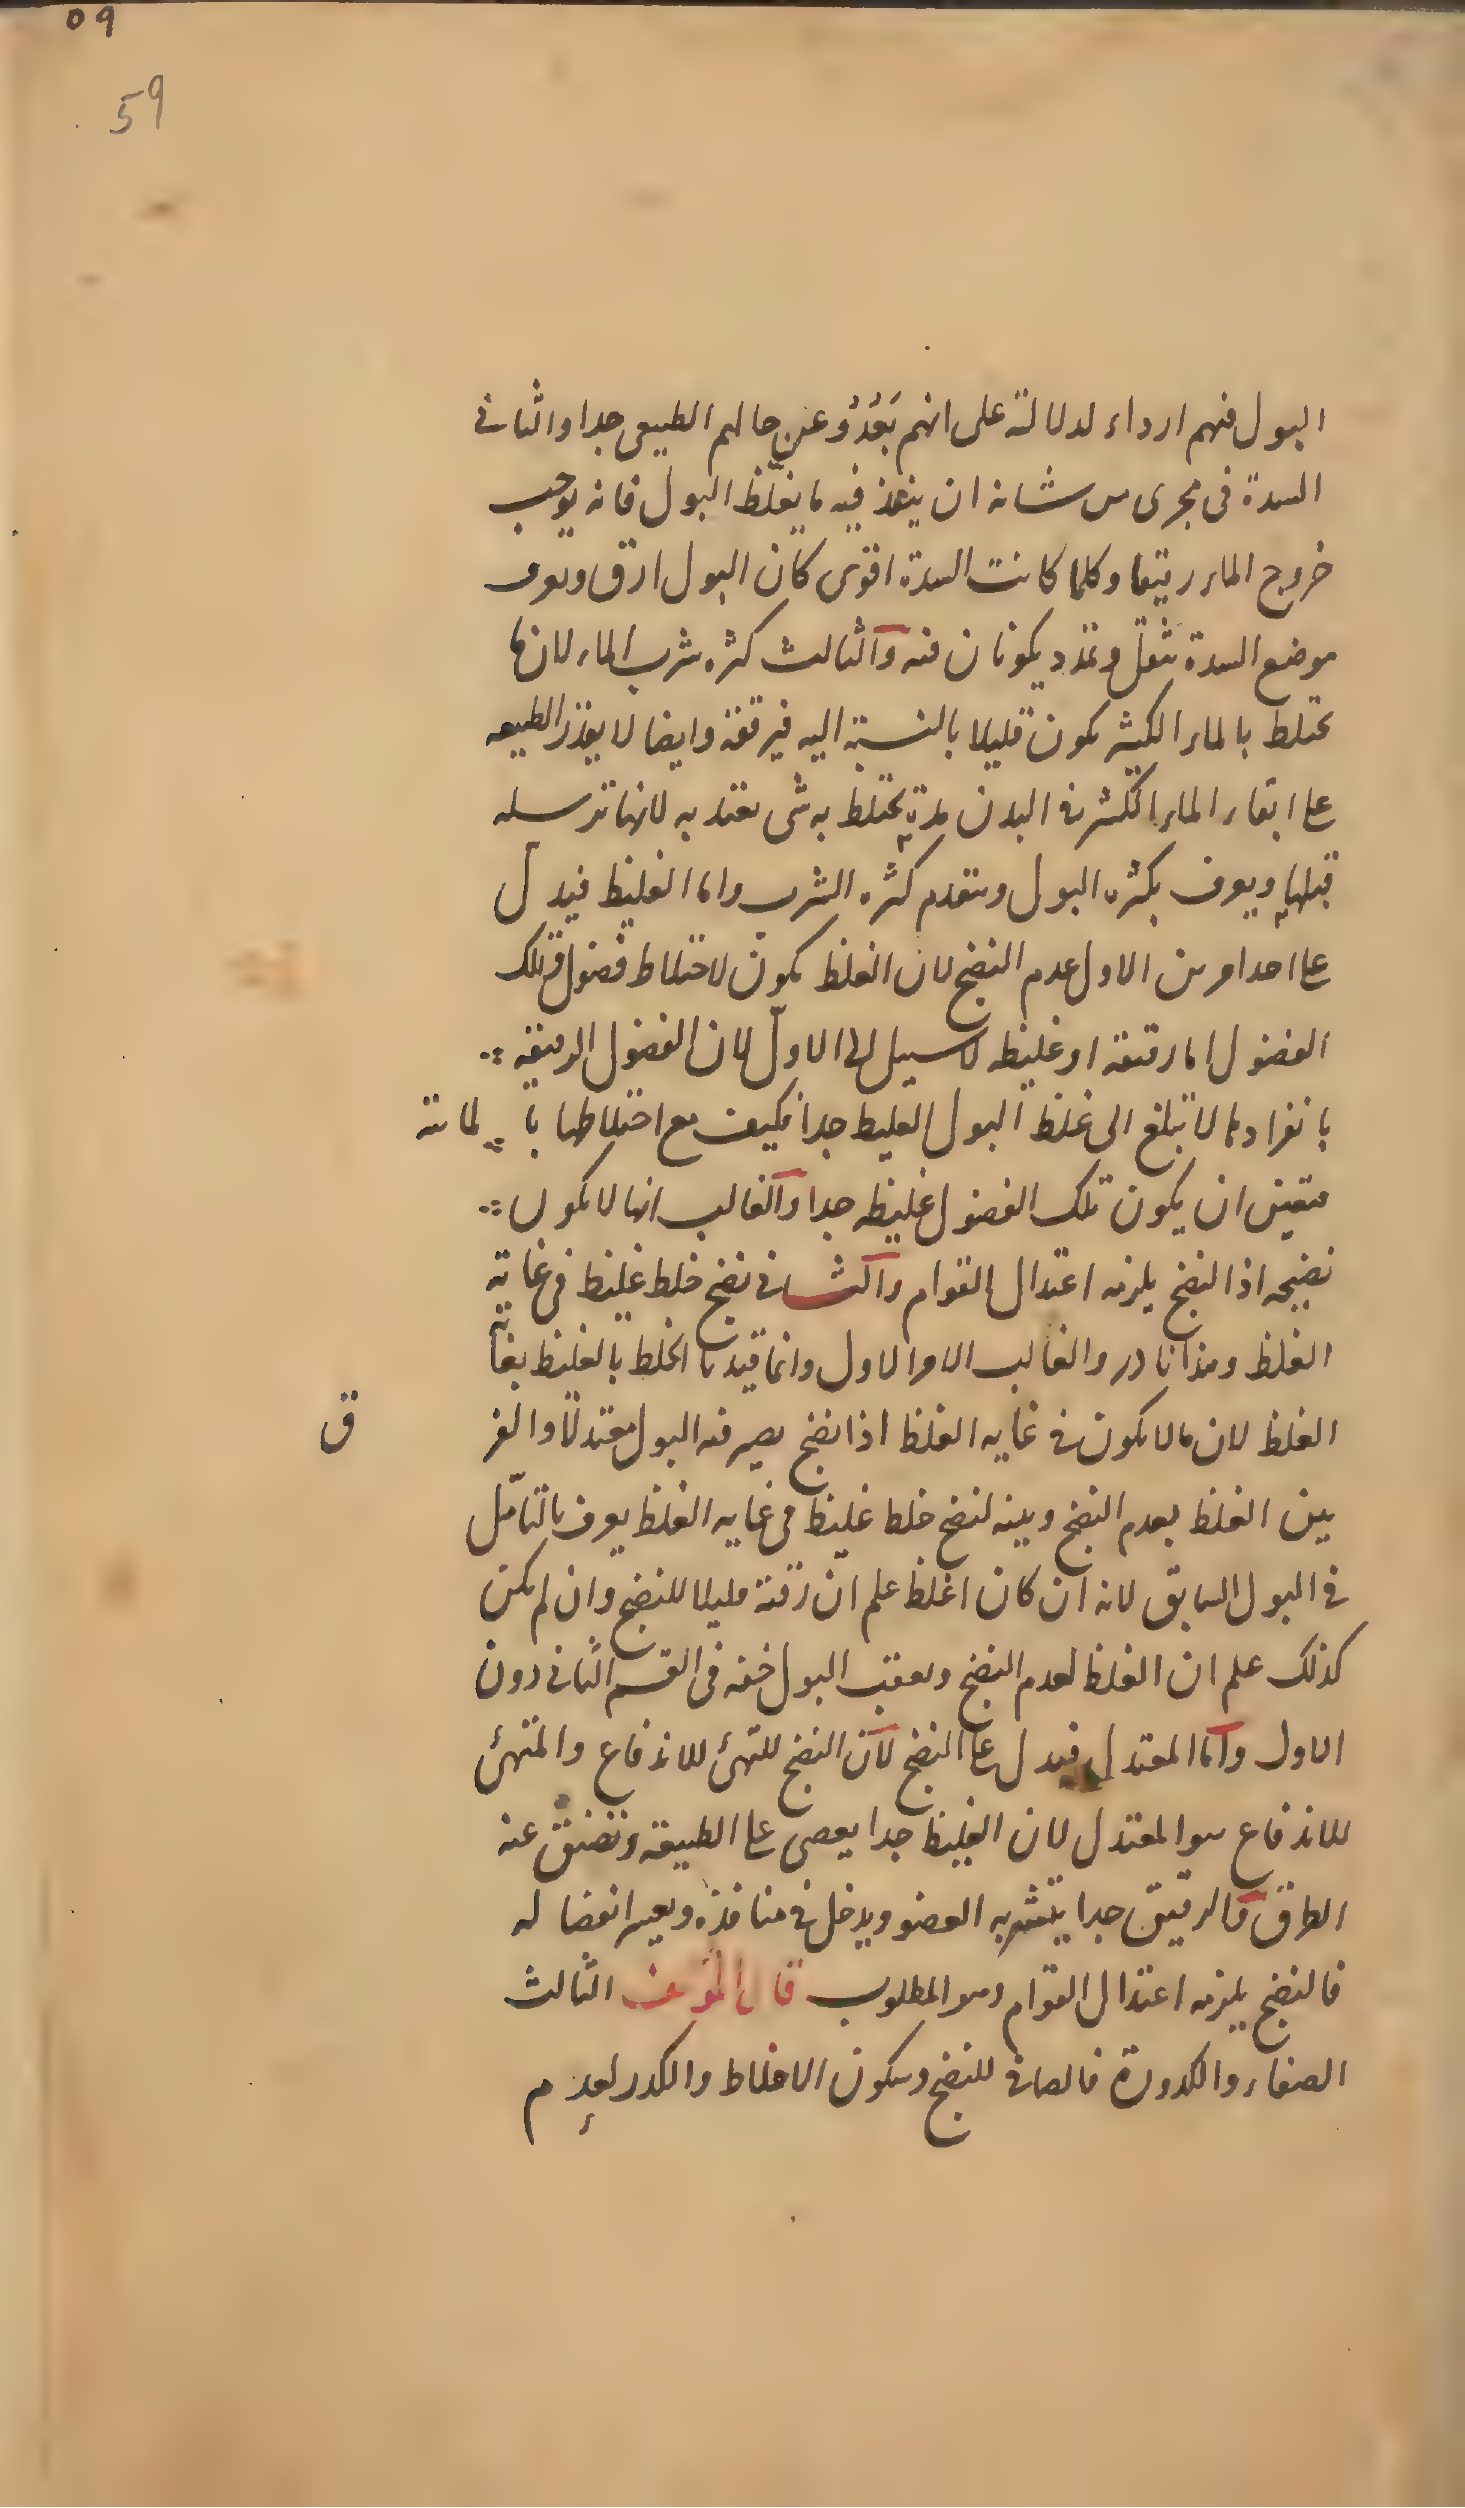 ٥٩
59
البول فهم ارداء لدلالته على انهم بَعُدُوْ عن حالهم الطبيعى جدا والثانى
السدة فى مجرى من شانه ان ينفذ فيه ما يغلظ البول فانه يوجب
خروج الماء رقيقا وكلما كانت السدة اقوى كان البول ارق ويعرف
موضع السدة بثقل وتمدد يكونان فيه والثالث كثره شرب الماء لان ما
يختلط بالماء الكثير يكون قليلا بالنسبة اليه فيرققه وايضا لا يقدر الطبيعه
على ابقاء الماء الكثير فى البدن مدة يختلط به شى يعتد به لانها ترسله
قبلها ويعرف بكثره البول وتقدم كثره الشرب واما الغليظ فيدل
على احد امرين الاول عدم النضج لان الغلظ يكون لاختلاط فضول وتلك
الفضول اما رقيقه او غليظه لا سبيل الى الاول لان الفضول الرقيقه
بانفرادها لا تبلغ الى غلظ البول الغليظ جدا فكيف مع اختلاطها بالمائية
فتعين ان يكون تلك الفضول غليظه جدا والغالب انها لا يكون
نضيجه اذ النضج يلزمه اعتدال القوام والثانى نضج خلط غليظ فى غاية
الغلظ وهذا نادر والغالب الامر الاول وانما قيدنا الخلط بالغليظ بغاية
الغلظ لان ما لا يكون فى غايه الغلظ اذا نضج يصير منه البول معتدلا والفرق
بين الغلظ بعدم النضج وبينه لنضج خلط غليظ فى غايه الغلظ يعرف بالتأمل
فى البول السابق لانه ان كان اغلظ علم ان رقته قليلا للنضج وان لم يكن
كذلك علم ان الغلظ لعدم النضج ويعقب البول خفه فى القسم الثانى دون
الاول واما المعتدل فيدل على النضج لان النضج للتهيئ للاندفاع والمتهيئ
للاندفاع هو المعتدل لان الغليظ جدا يعصى على الطبيعه وتضيق عنه
الطرق والرقيق جدا يتشربه العضو ويدخل فى منافذه ويعسر انفصاله
فالنضج يلزمه اعتدال القوام وهو المطلوب قال المؤلف الثالث
الصفاء والكدورة فالصافى للنضج وسكون الاخلاط والكدر لعدم